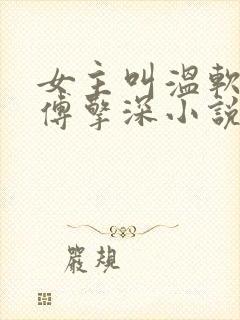 女主叫溫軟
傅擎深小說
嚴規